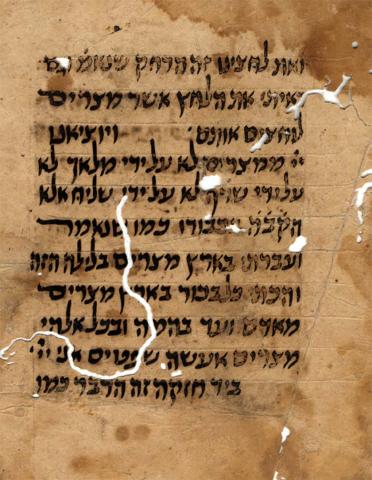 ואת לחצינו זה הדחק שנאמר וגם
ראיתי את הלחץ אשר מצרים
לוחצים אותם: ויוציאנו
יי ממצרים לא על ידי מלאך לא
על ידי שרף לא על ידי שליח אלא
הקבה בכבודו כמו שנאמר
ועברתי בארץ מצרים בלילה הזה
והכתי כל בכור בארץ מצרים
מאדם ועד בהמה ובכל אלהי
מצרים אעשה שפטים אני יי
ביד חזקה זה הדבר כמו